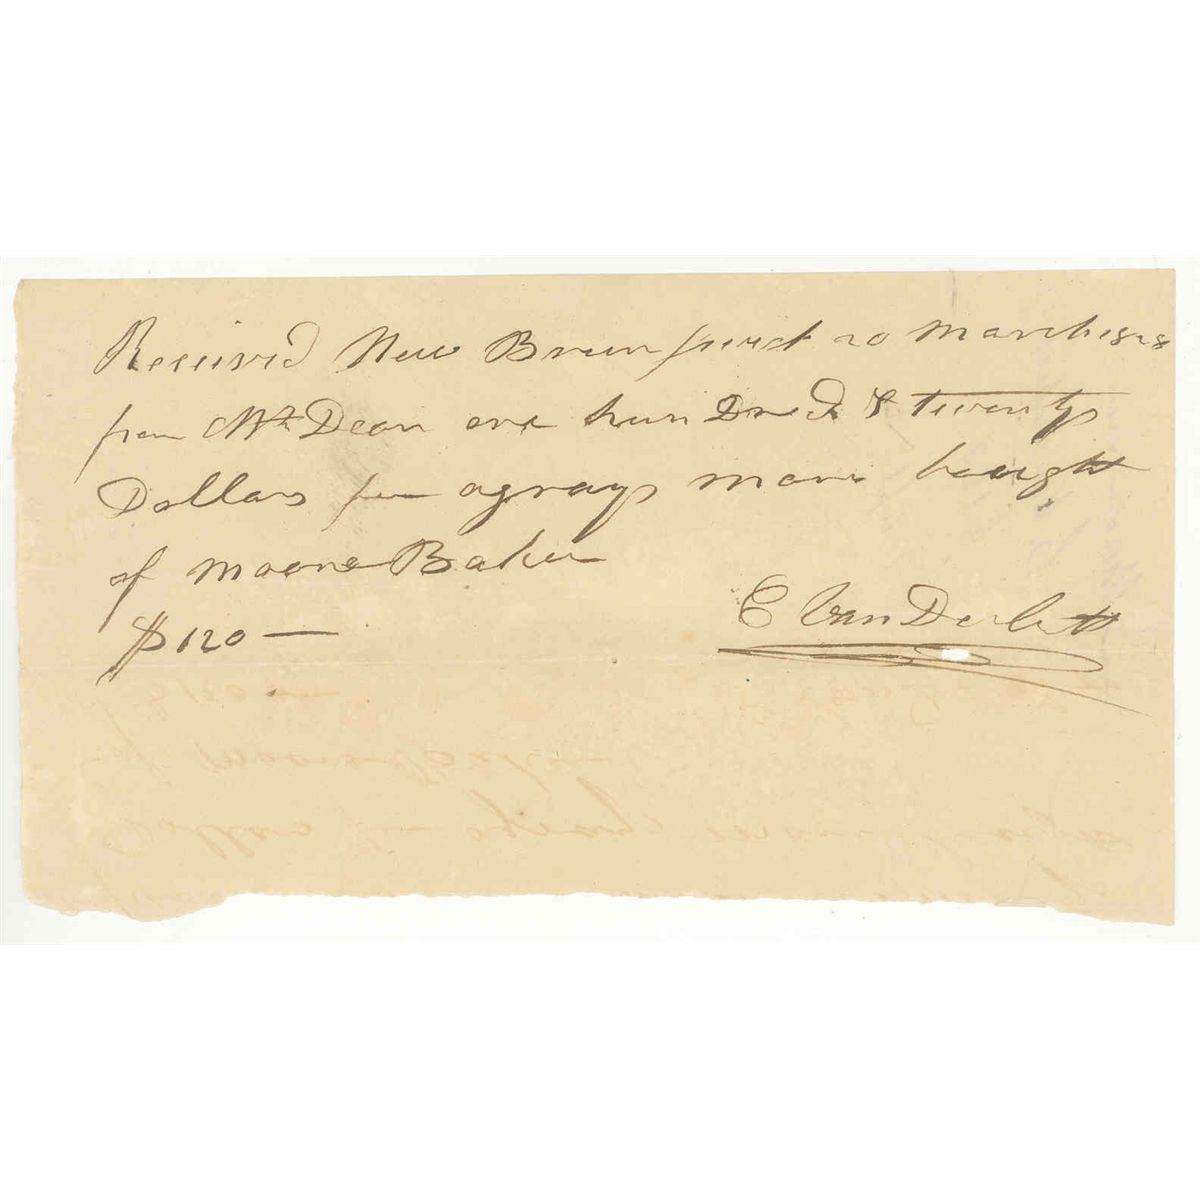 Received New Brunswick 20 March 1828
from Mr Dean one hun Dred & twenty
Dollars for a gray mare bought
of Moore Baker
$120 —
C Van Derbilt